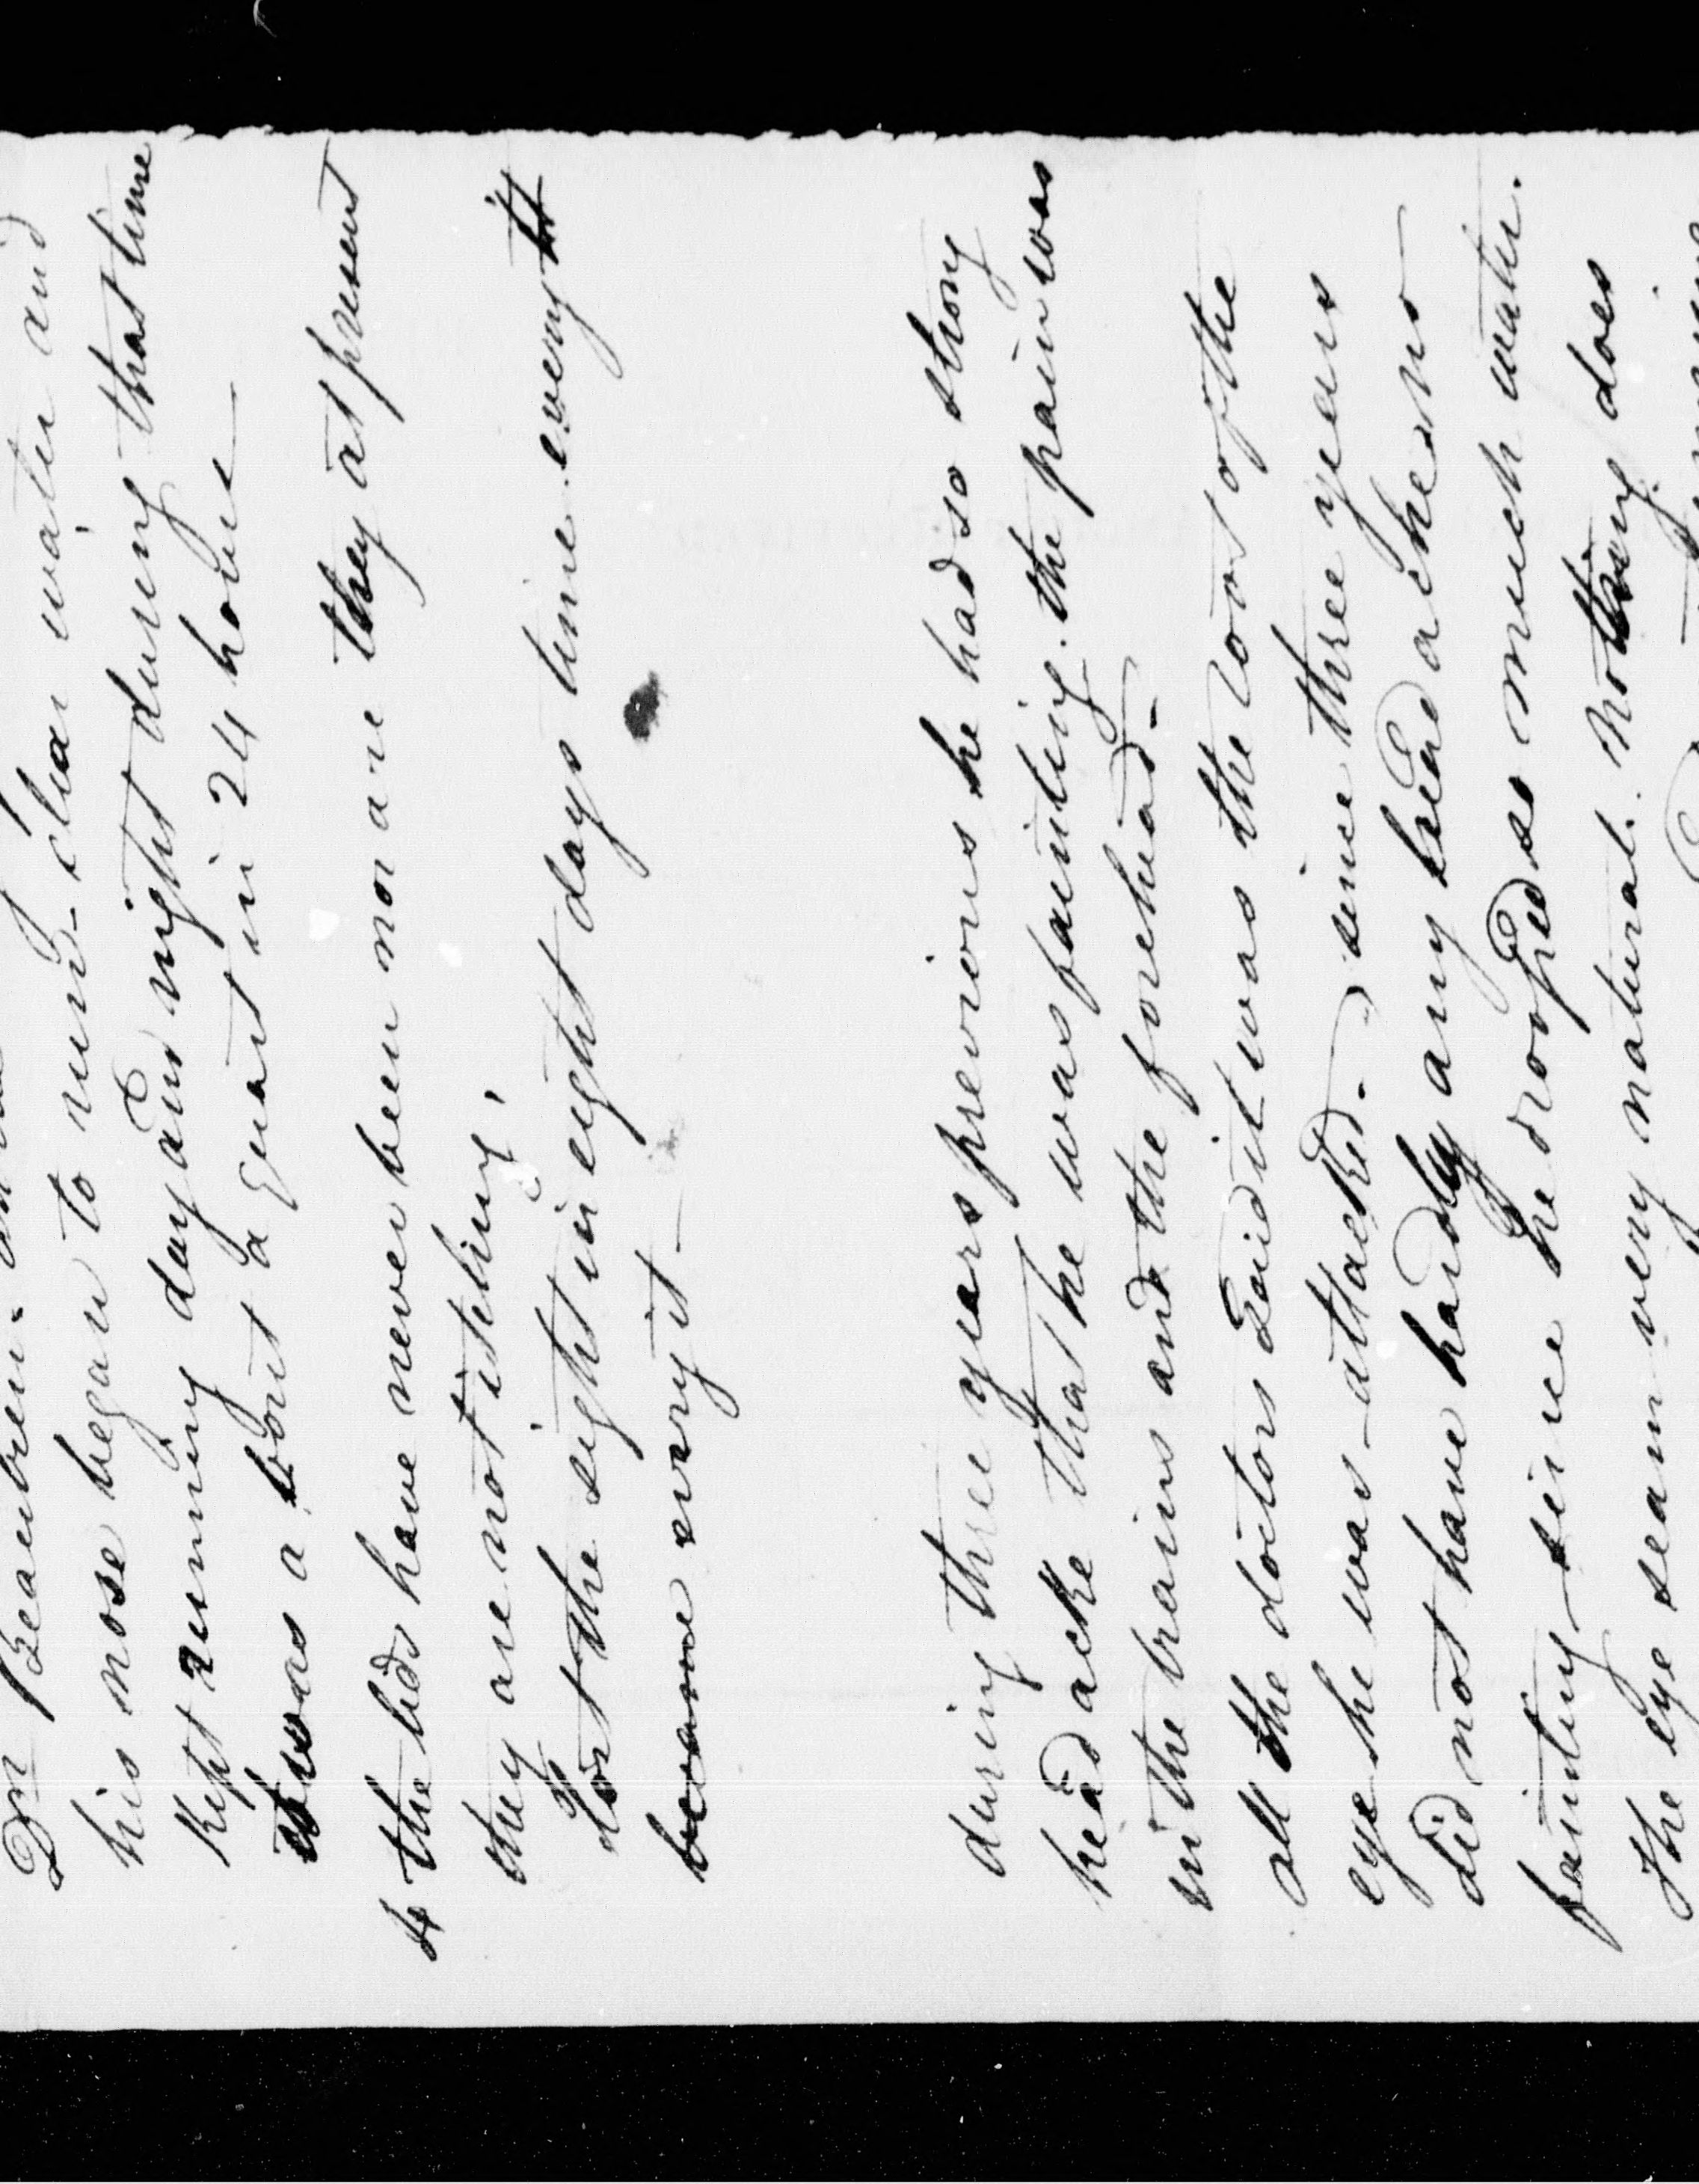 Dr Beaubien.
his nose began to run - clear water and
kept running day and night during that time
it was a bout a quart in 24 hours
4 the lids have never been nor are they at present
they are not itching,
lost the sight in eight days time every it
became every it -
during three years previous he had so strong
head acke that he was fainting. the pain was
in the brains and the forehead -
all the doitors said it was the root of the
eye he was attacked. since three years
did not have hardly any head ache no
fainting - since he dropped so much water.
The eye seam very natural. Nothing does